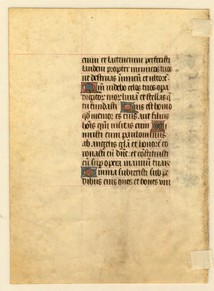 cium et lactentium perfecisti
laudem propter inimicos tuos
ut destruas inimicū et ultorē
Quoniā videbo celos tuos opa
digitor̄ tuor̄ lunā et stellas q̄
tu fundasti Quid est homo
qđ memor es eius aut filius
hōis qm̄ visitas eum Mi
nuisti eum paulominus
ab angelis gl̄a et honore co
ronasti eū dn̄e et cōstituisti
eū sup opera manuū tuar̄
Omnia subiecisti sub pe
dibus eius oues et boues vni